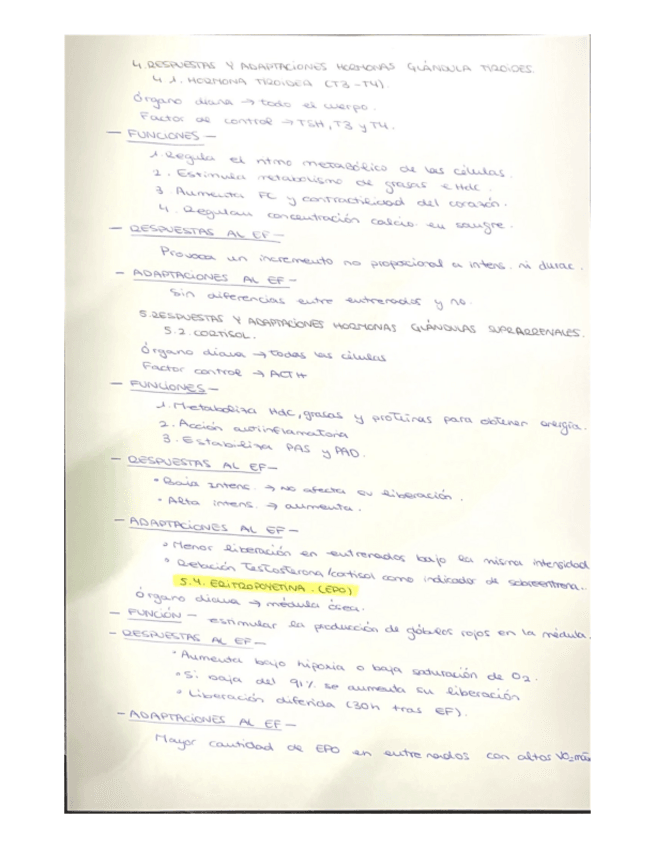 4. RESPUESTAS Y ADAPTACIONES HORMONAS GLÁNDULA TIROIDES.
4.1. HORMONA TIROIDEA (T3-T4).
Órgano diana → todo el cuerpo.
Factor de control → TSH, T3 y T4.
- FUNCIONES -
1. Regula el ritmo metabólico de las células.
2. Estimula metabolismo de grasas e Hdc.
3. Aumenta FC y contractilidad del corazón.
4. Regulan concentración calcio en sangre.
- RESPUESTAS AL EF -
Provoca un incremento no proporcional a intens. ni durac.
- ADAPTACIONES AL EF -
Sin diferencias entre entrenados y no.
5. RESPUESTAS Y ADAPTACIONES HORMONAS GLÁNDULAS SUPRARRENALES.
5.2. CORTISOL.
Órgano diana → todas las células
Factor control → ACTH
- FUNCIONES -
1. Metaboliza Hdc, grasas y proteínas para obtener energía.
2. Acción antiinflamatoria
3. Estabiliza PAS y PAD.
- RESPUESTAS AL EF -
• Baja Intens. → no afecta su liberación.
• Alta intens. → aumenta.
- ADAPTACIONES AL EF -
• Menor liberación en entrenados bajo la misma intensidad
• Relación Testosterona/cortisol como indicador de sobreentren..
5.4. ERITROPOYETINA. (EPO)
Órgano diana → médula ósea.
- FUNCIÓN - estimular la producción de glóbulos rojos en la médula.
- RESPUESTAS AL EF -
• Aumenta bajo hipoxia o baja saturación de O2.
• Si baja del 91% se aumenta su liberación
• Liberación diferida (30h tras EF).
- ADAPTACIONES AL EF -
Mayor cantidad de EPO en entrenados con altos VO2máx